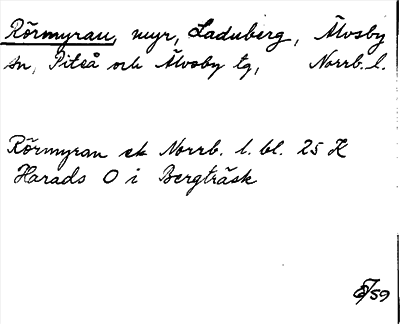 Rörmyran, myr, Laduberg, Älvsby
sn, Piteå och Älvsby tg, Norrb. l.
Rörmyran ek Norrb. l. bl. 25 H
Harads O i Bergträsk
/59